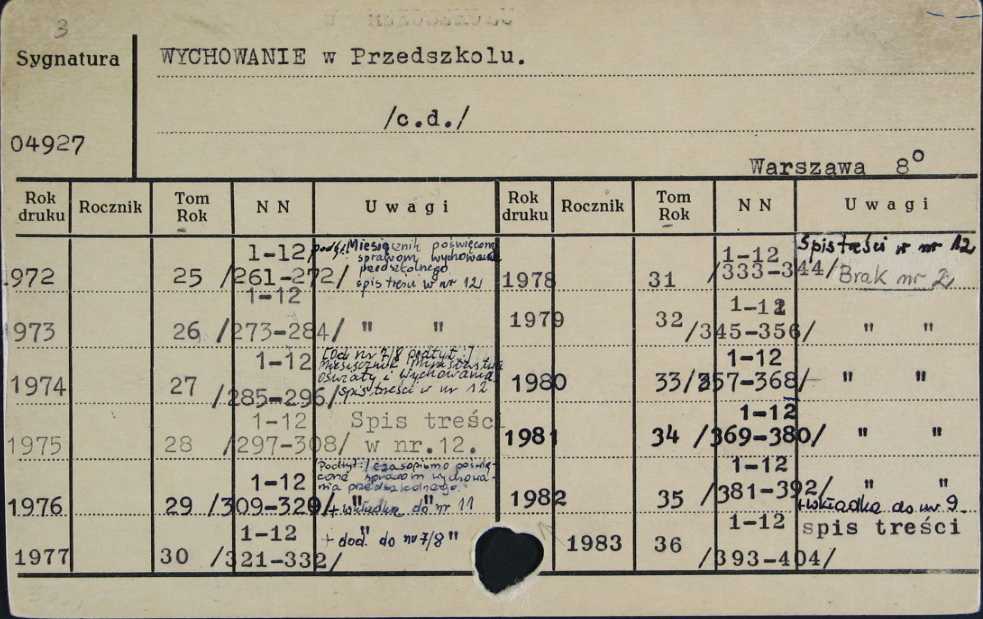 3
Sygnatura
WYCHOWANIE w Przedszkolu.
/c.d./
04927
Warszawa 8º
Rok druku Rocznik Tom Rok NN Uwagi Rok druku Rocznik Tom Rok NN Uwagi
1972 25 1-12 /261-272/ podtyt: Miesięcznik poświęcony
sprawom wychowania
przedszkolnego
spis treści w nr 12
1973 26 1-12 /273-284/ " "
1974 27 1-12 /285-296/ [Od nr 7/8 podtyt.:]
Miesięcznik Ministerstwa
Oświaty i Wychowania
spis treści w nr 12
1975 28 1-12 /297-308/ Spis treści
w nr.12.
1976 29 1-12 /309-320/ Podtyt.: Czasopismo poświę-
cone sprawom wychowa-
nia przedszkolnego.
" "
+wkładka do nr 11
1977 30 1-12 /321-332/ " "
+ dod. do nr 7/8
1978 31 1-12 /333-344/ Spis treści w nr 12
Brak nr 2
1979 32 1-12 /345-356/ " "
1980 33 1-12 /357-368/ " "
1981 34 1-12 /369-380/ " "
1982 35 1-12 /381-392/ " "
+wkładka do nr 9.
1983 36 1-12 /393-404/ spis treści